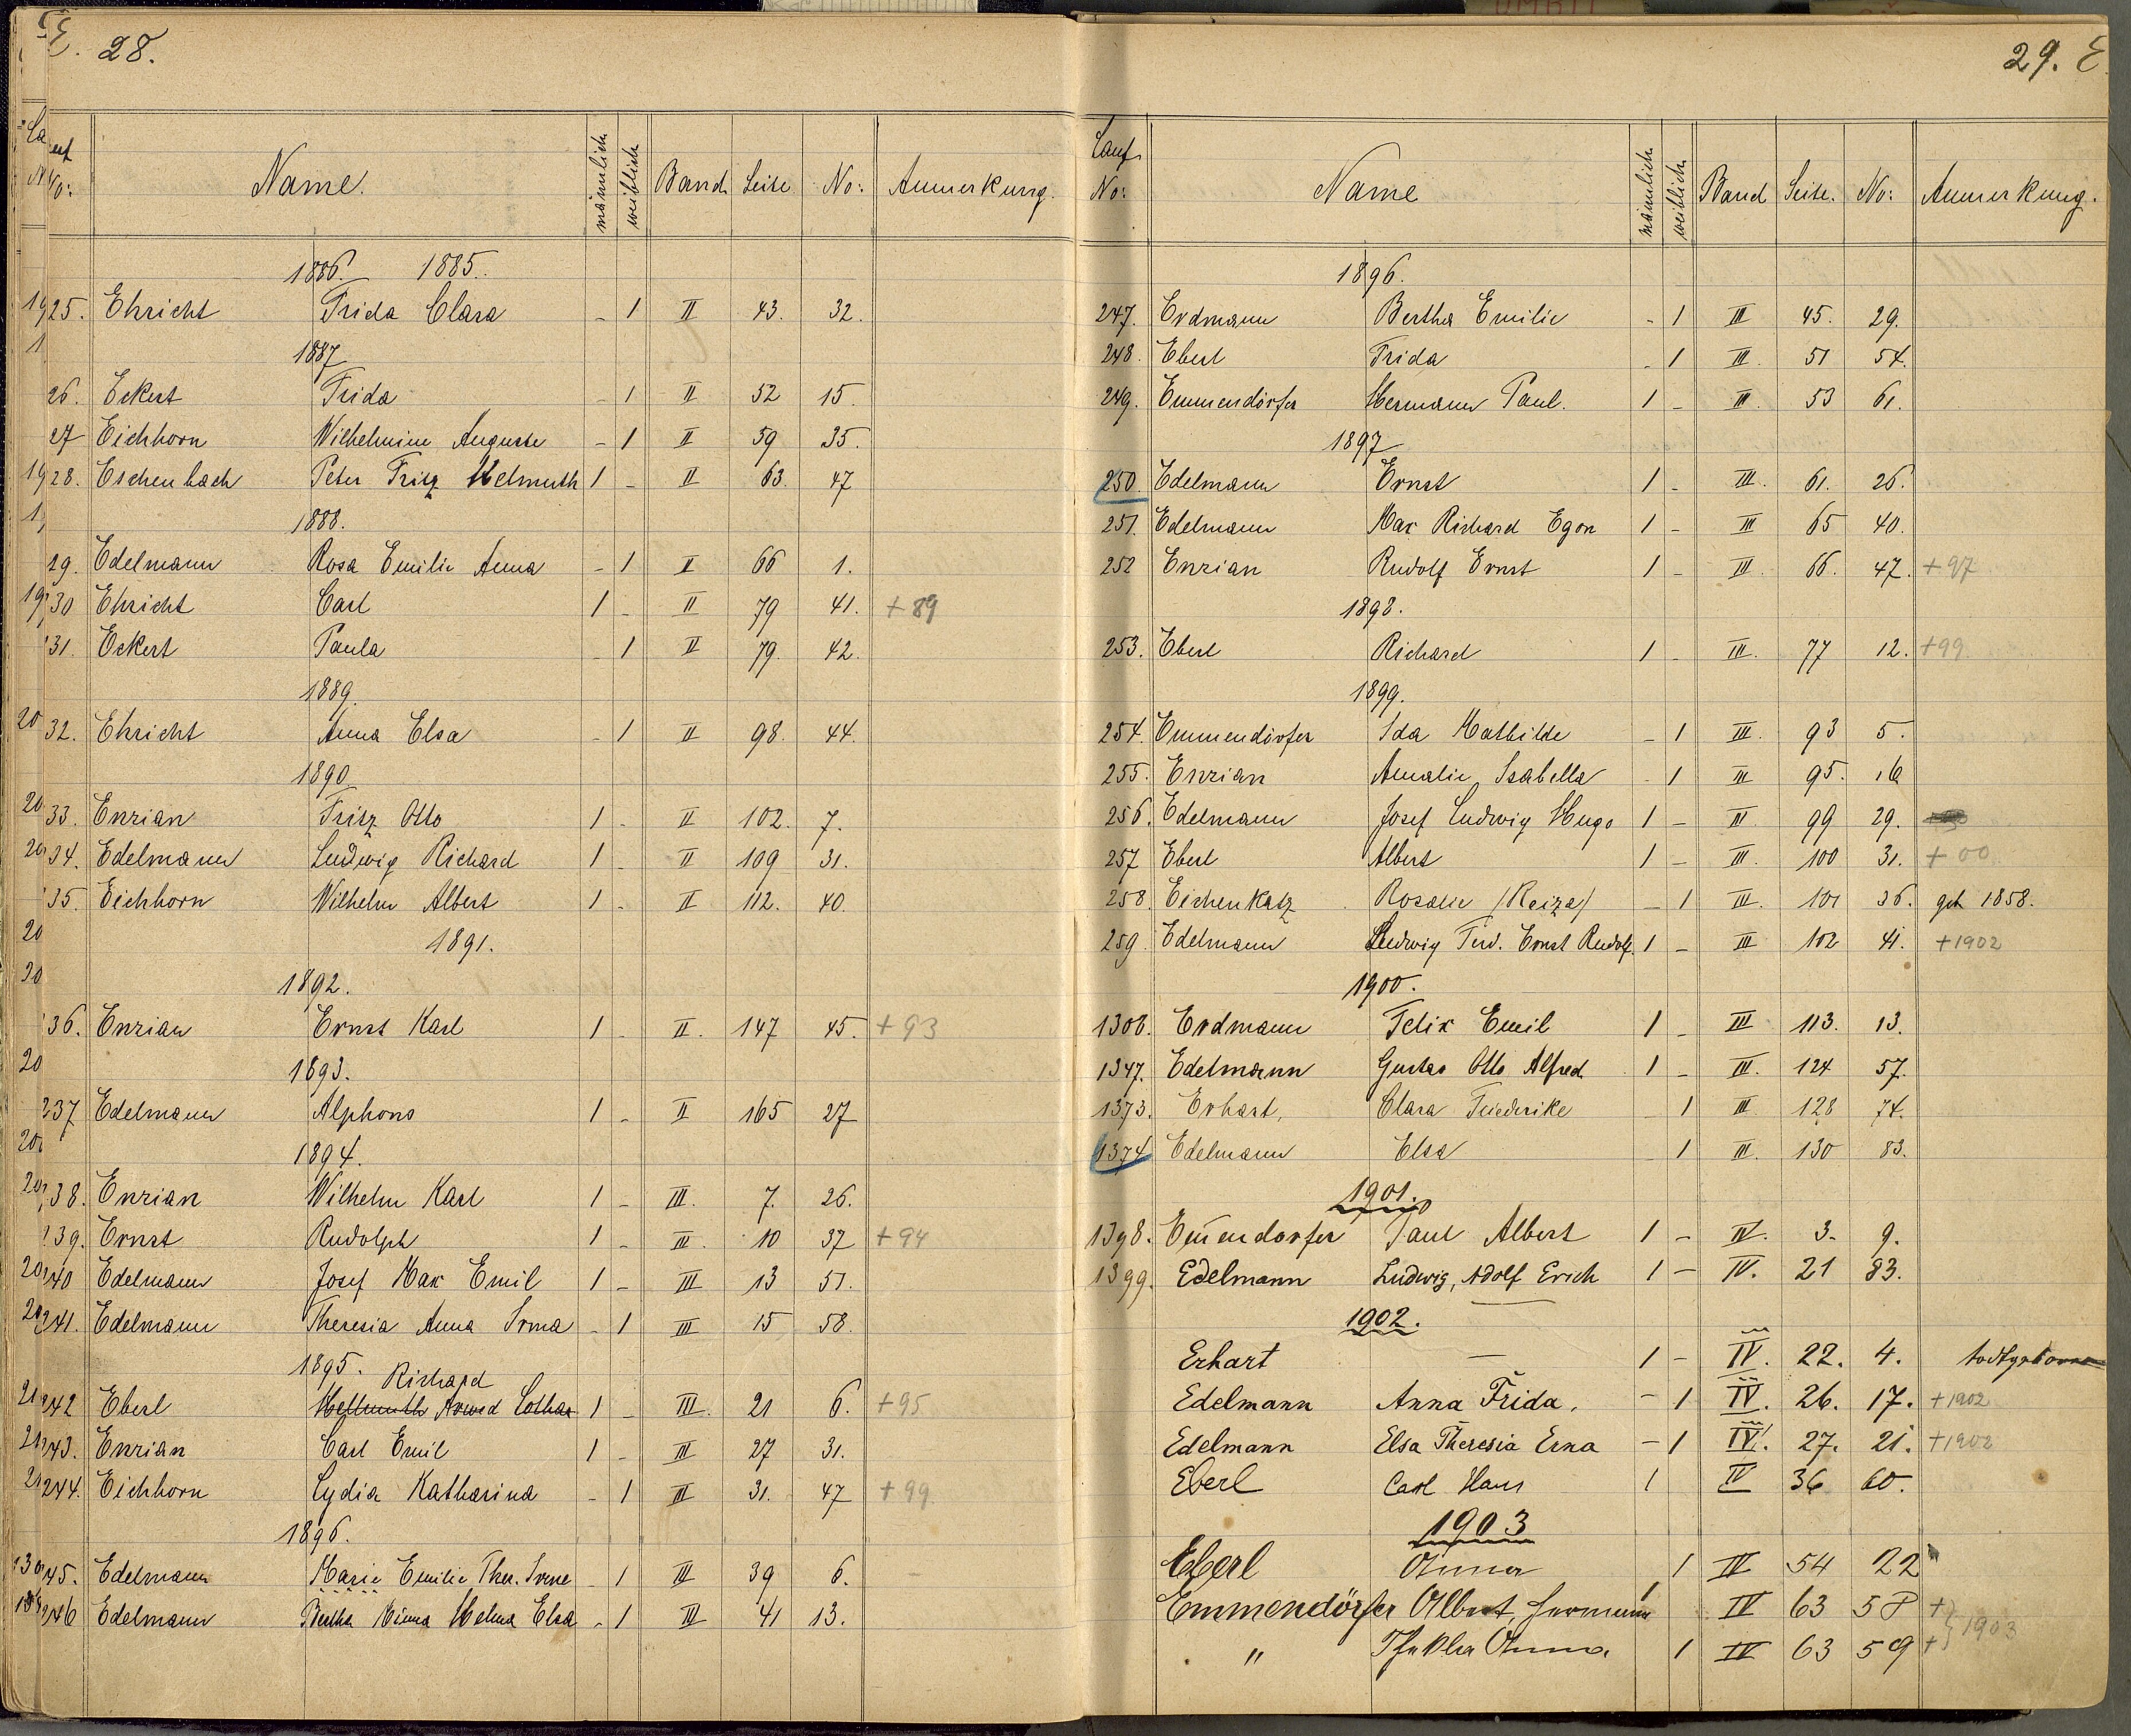 E. 28.
Lauf No: Name. männlich weiblich Band Seite No: Anmerkung.
1886. 1885.
25. Ehricht Frida Clara - 1 II 43. 32.
1887
26. Eckert Frida - 1 II 52 15.
27 Eichhorn Wilhelmine Auguste - 1 II 59 35.
28. Eschenbach Peter Fritz Helmuth 1 - II 63. 47
1888.
29. Edelmann Rosa Emilie Anna - 1 II 66 1.
30 Ehricht Carl 1 - II 79 41. +89
31. Eckert Paula - 1 II 79. 42.
1889.
32. Ehricht Anna Elsa - 1 II 98. 44.
1890
33. Enzian Fritz Otto 1 - II 102. 7.
34. Edelmann Ludwig Richard 1 - II 109 31.
35. Eichhorn Wilhelm Albert 1 - II 112. 40.
1891.
1892.
36. Enzian Ernst Karl 1 - II. 147 45. +93
1893.
237 Edelmann Alphons 1 - II 165 27
1894.
38. Enzian Wilhelm Karl 1 - III. 7. 26.
239. Ernst Rudolph 1 - III. 10 37 +94
240 Edelmann Josef Max Emil 1 - III 13 51.
241. Edelmann Theresia Anna Irma - 1 III 15 58.
1895. Richard
242 Eberl Hellmuth Arwed Lothar 1 - III. 21 6. +95
243. Enzian Carl Emil 1 - III 27 31.
244. Eichhorn Lydia Katharina - 1 III 31. 47 +99
1896.
245. Edelmann Marie Emilie Ther. Irene - 1 III 39 6.
246 Edelmann Bertha Minna Helma Elsa - 1 III 41 13.
29. E.
Lauf. No: Name männlich weiblich Band Seite. No: Anmerkung.
1896.
247. Erdmann Bertha Emilie - 1 III 45. 29.
248. Eberl Frida - 1 III. 51 54.
249. Emmendörfer Hermann Paul. 1 - III. 53 61.
1897
250. Edelmann Ernst 1 - III. 61. 26.
251. Edelmann Max Richard Egon 1 - III 65 40.
252 Enzian Rudolf Ernst 1 - III. 66. 47. +97
1898.
253. Eberl Richard 1 - III. 77 12. +99.
1899.
254. Emmendörfer Ida Mathilde - 1 III. 93 5.
255. Enzian Amalie Isabella - 1 III 95. 16
256. Edelmann Josef Ludwig Hugo 1 - III. 99 29.
257 Eberl Albert 1 - III. 100 31. +00.
258. Eichenkatz Rosalie (Reize) - 1 III. 101 36. geb 1858.
259. Edelmann Ludwig Ferd. Ernst Rudolf. 1 - III 102 41. +1902
1900.
1306. Erdmann Felix Emil 1 - III 113. 13.
1347. Edelmann Gustav Otto Alfred 1 - III. 124 57.
1373. Erhart, Clara Friederike - 1 III. 128 74.
1374 Edelmann Elsa - 1 III. 130 83.
1901.
1398. Em̄endorfer Paul Albert 1 - IV. 3. 9.
1399. Edelmann Ludwig, Adolf Erich 1 - IV. 21 83.
1902.
Erhart — 1 - IV. 22. 4. todtgeboren
Edelmann Anna Frida. - 1 IV. 26. 17. +1902
Edelmann Elsa Theresia Erna - 1 IV. 27. 21. +1902
Eberl Carl Hans 1 IV 36 60.
1903
Eberl Anna 1 IV 54 22
Emmendörfer Albert, Hermann 1 IV 63 58 + } 1903
" Thekla Anna 1 IV 63 59 +